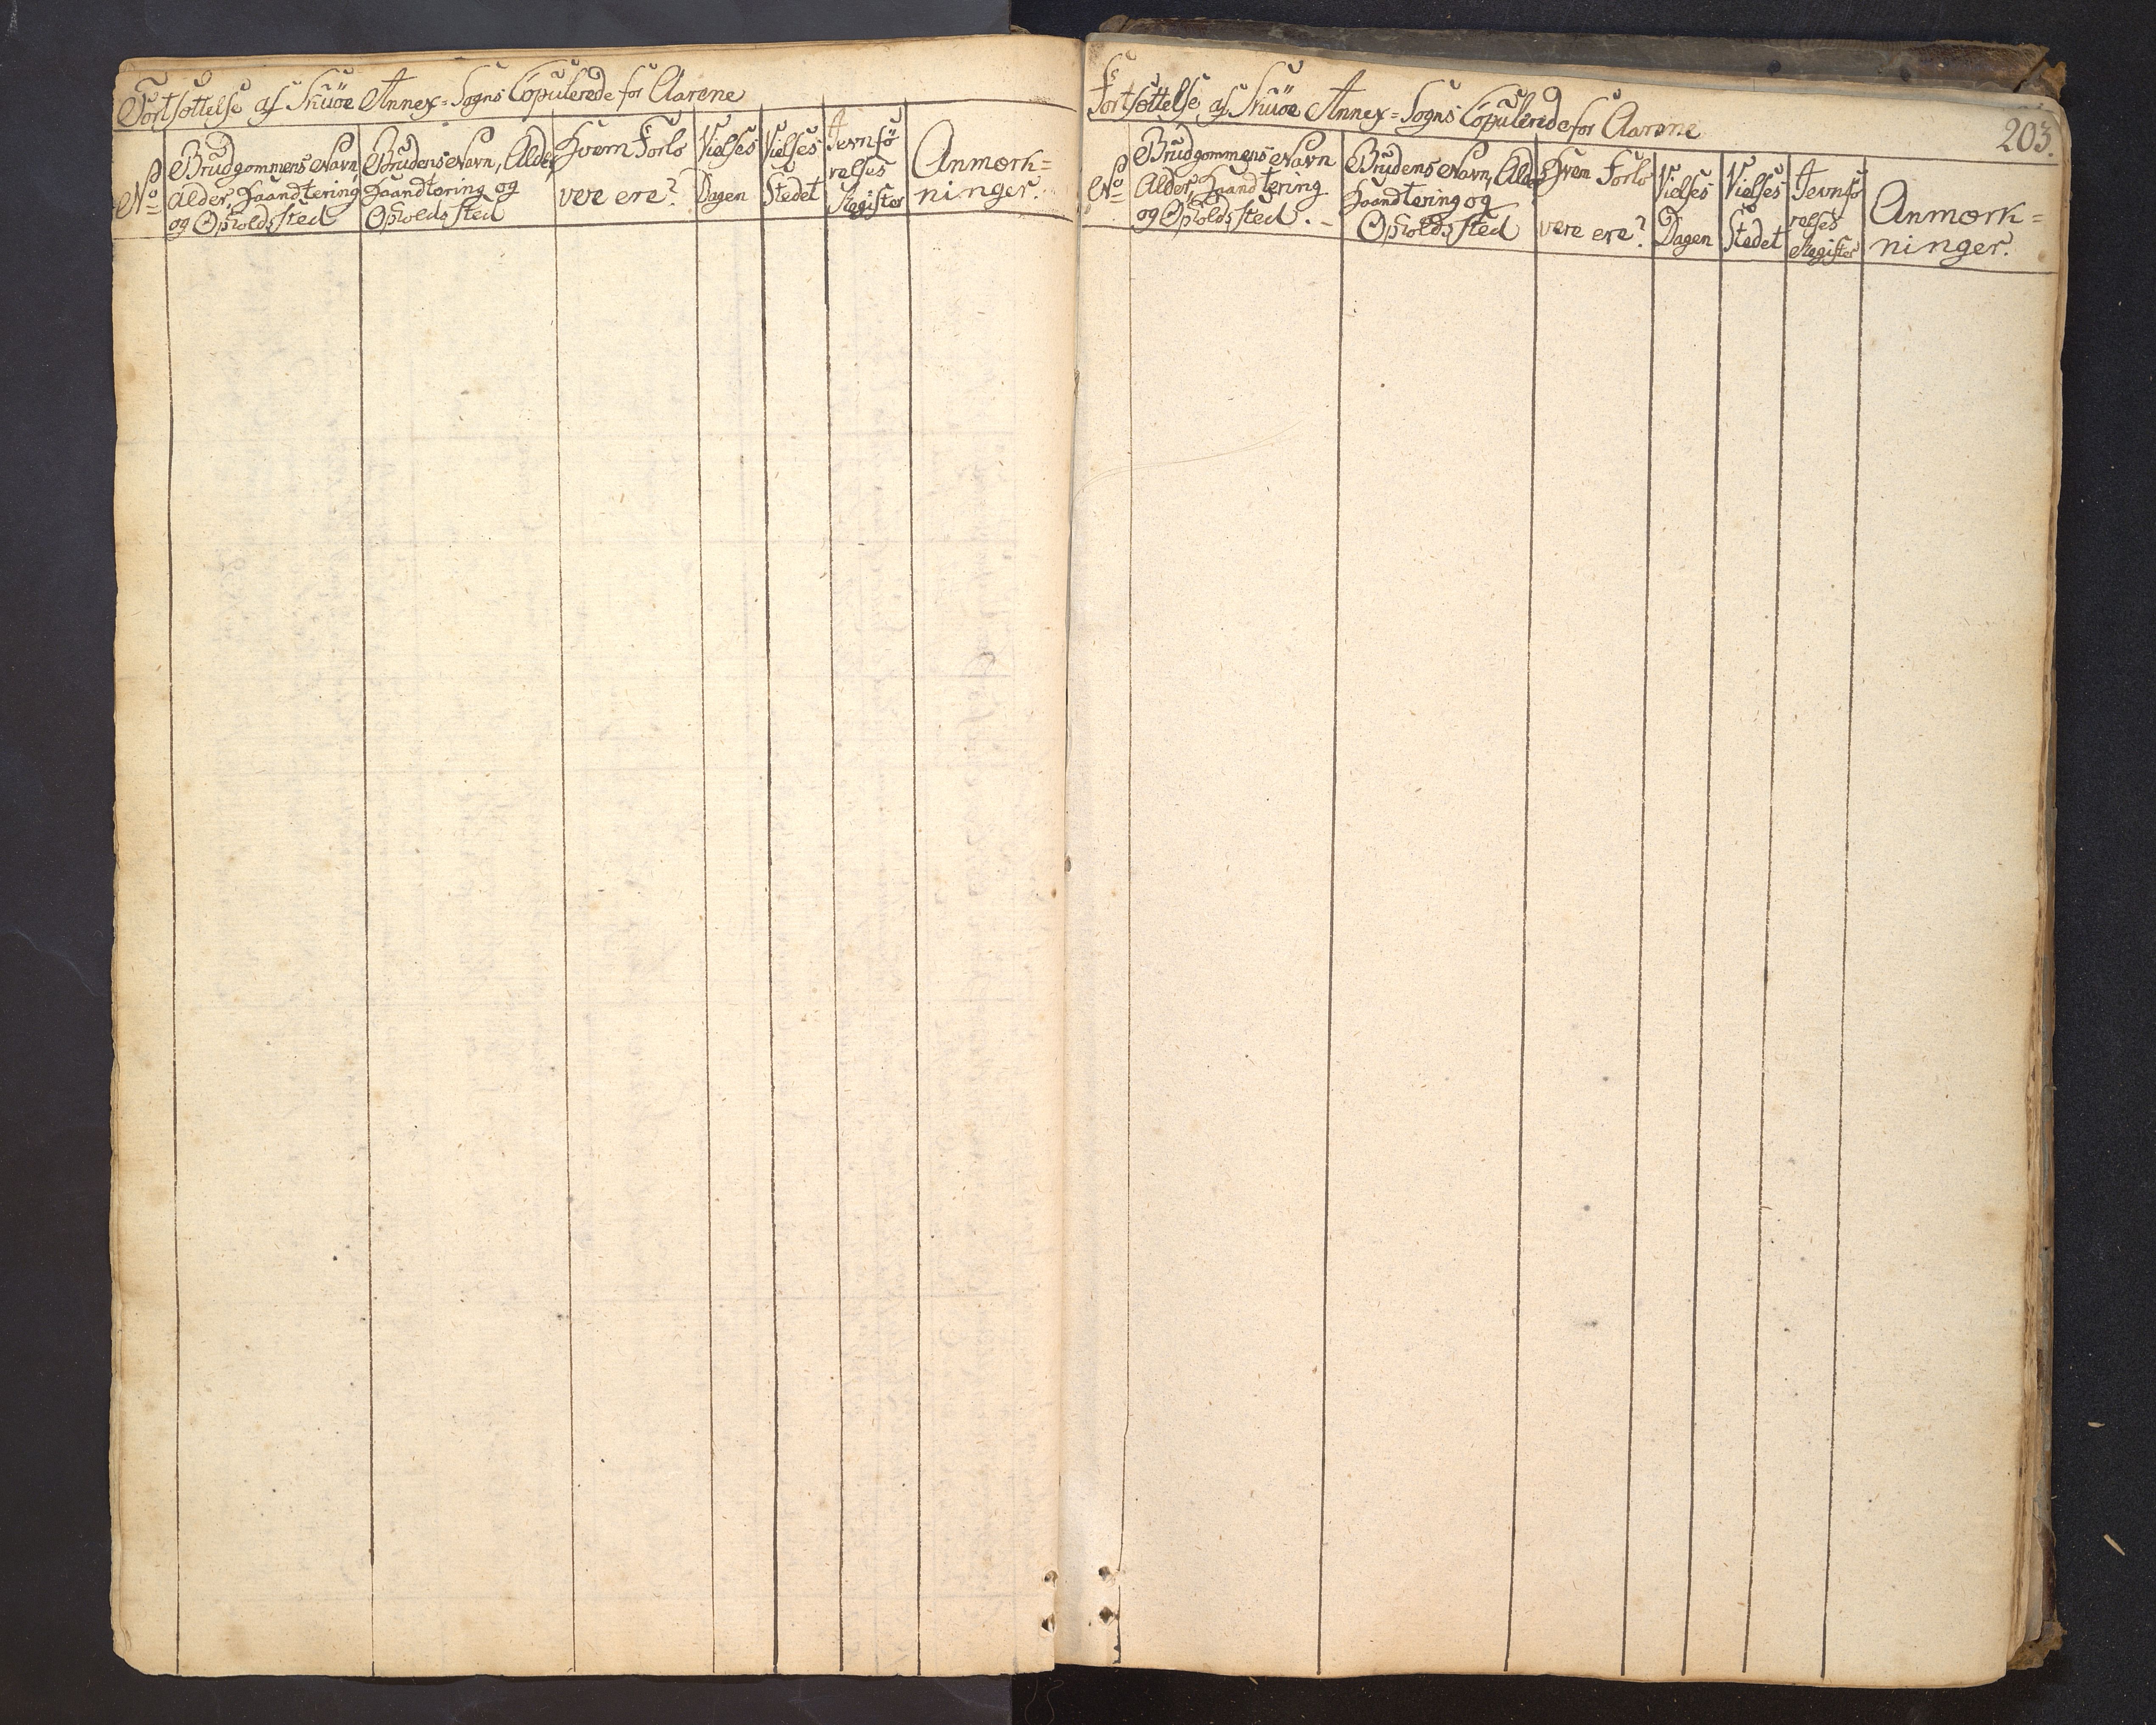 Fortsættelse af Skuøe Annex-Sogns Copulerede for Aarene
No
Brudgommens Navn
Alder, Haandtering
og Opholds sted
Brudens Navn, Alder
Haandtering og
Opholds sted
Hvem Forlo
vere ere?
Vielses
Dagen
Vielses
Stedet
Jevnfö
relses
Register
Anmærk=
ninger.
Fortsættelse af Skuøe Annex=Sogns Copulerede for Aarene
203.
No
Brudgommens Navn
Alder, Haandtering
og Opholds sted.-
Brudens Navn, Alder
Haandtering og
Opholds sted
Hvem Forlo
vere ere?
Vielses
Dagen
Vielses
Stedet
Jevnfö
relses
Register
Anmærk=
ninger.